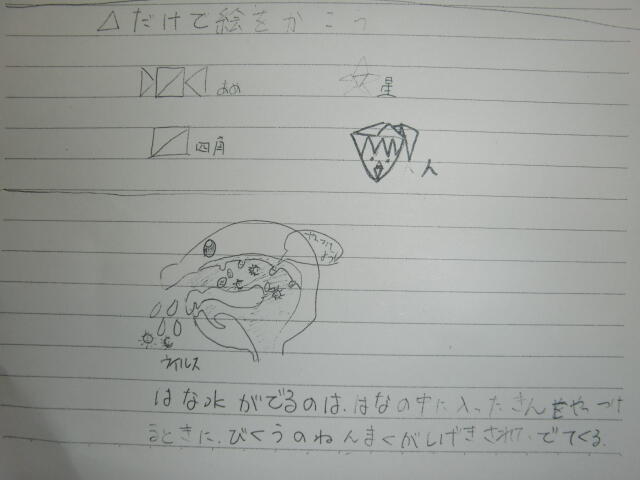 △だけで絵をかこう
あめ
星
四角
人
ウイルス
はな水がでるのは、はなの中に入ったきんをやっつけ
るときに、びくうのねんまくがしげきされて、でてくる。